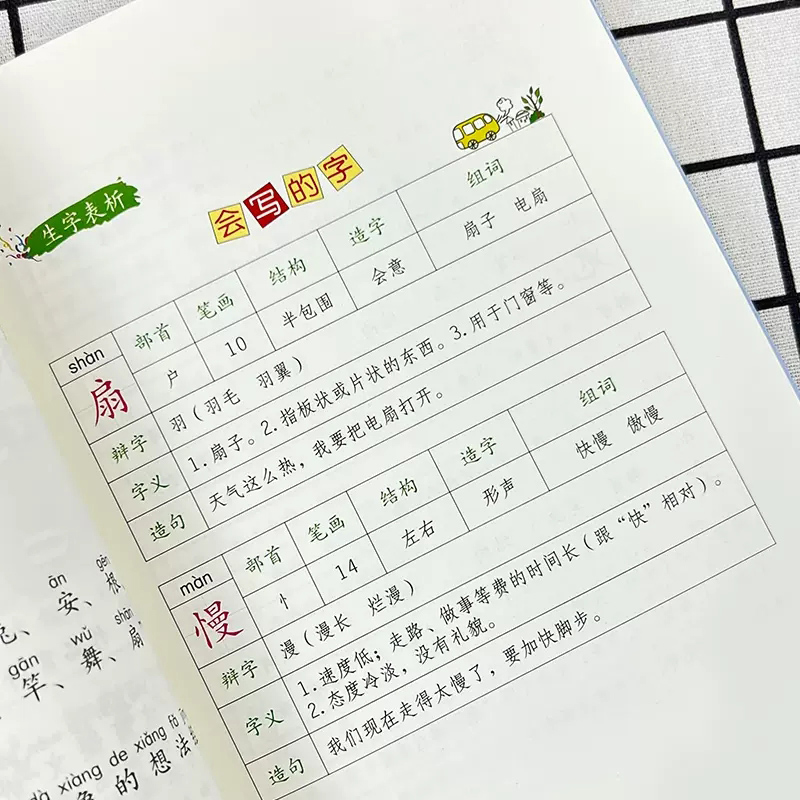 生字表析
会写的字
shàn 部首 笔画 结构 造字 组词
扇 户 10 半包围 会意 扇子 电扇
辩字 羽(羽毛 羽翼)
字义 1.扇子。2.指板状或片状的东西。3.用于门窗等。
造句 天气这么热,我要把电扇打开。
màn 部首 笔画 结构 造字 组词
慢 忄 14 左右 形声 快慢 傲慢
辩字 漫(漫长 烂漫)
字义 1.速度低;走路、做事等费的时间长(跟“快”相对)。
2.态度冷淡,没有礼貌。
造句 我们现在走得太慢了,要加快脚步。
ān gēn
、安、根
gān wǔ shān
竿、舞、扇
xiàng de xiǎng fǎ
的想法